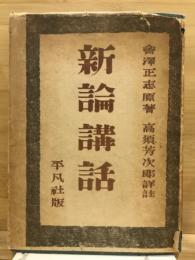 會澤正志原著
高須芳次郎譯註
新論講話
平凡社版